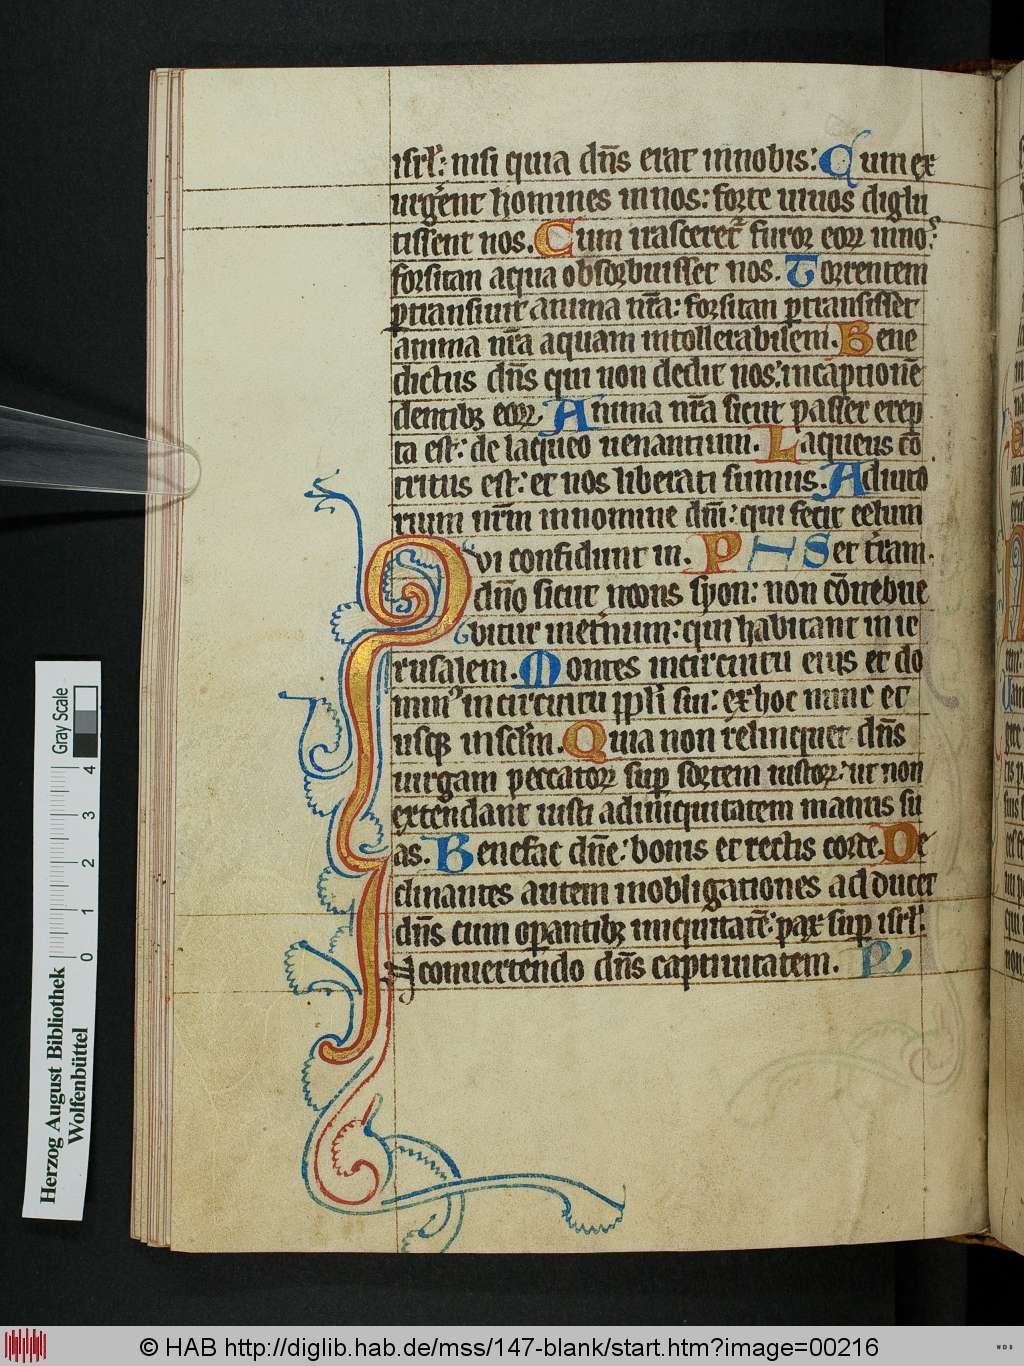 isrl': nisi quia dn̄s erat in nobis: Cum ex
urgēnt homines in nos: forte uiuos diglu
tissent nos. Cum irascerēt furor eoꝝ in noˀ:
forsitan aqua obsorbuisset nos. Torrentem
ꝑtransiuit anima nr̄a: forsitan ꝑtransisset
anima nr̄a aquam intollerabilem. Bene
dictus dn̄s qui non dedit nos: in captionē
dentibꝫ eoꝝ. Anima nr̄a sicut passer erep
ta est: de laqueo uenantium. Laqueus cō
tritus est: et nos liberati sumus. Adiuto
rium nr̄m in nomine dn̄i: qui fecit celum
Qui confidunt in. P H S et tr̄am.
dn̄o sicut mons syon: non cōmoue
bitur in et̄num: qui habitant in ie
rusalem. Montes in circuitu eius et do
minˀ in circuitu ppl'i sui: ex hoc nunc et
usqꝫ in scl'm. Quia non relinquet dn̄s
uirgam peccatoꝝ suꝑ sortem iustoꝝ: ut non
extendant iusti ad iniquitatem manus su
as. Benefac dn̄e: bonis et rectis corde. De
clinantes autem in obligationes adducet
dn̄s cum oꝑantibꝫ iniquitatē: pax suꝑ isrl'.
In conuertendo dn̄s captiuitatem. P
Gray Scale
0 1 2 3 4
Herzog August Bibliothek
Wolfenbüttel
© HAB http://diglib.hab.de/mss/147-blank/start.htm?image=00216